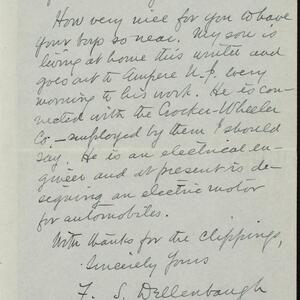 How very nice for you to have
your boys so near. My son is
living at home this winter and
goes out to Ampere N.J. every
morning to his work. He is con-
nected with the Crocker-Wheeler
Co. – employed by them I should
say. He is an electrical en-
gineer and at present is de-
signing an electric motor
for automobiles.
With thanks for the clippings,
Sincerely Yours
F. S. Dellenbaugh